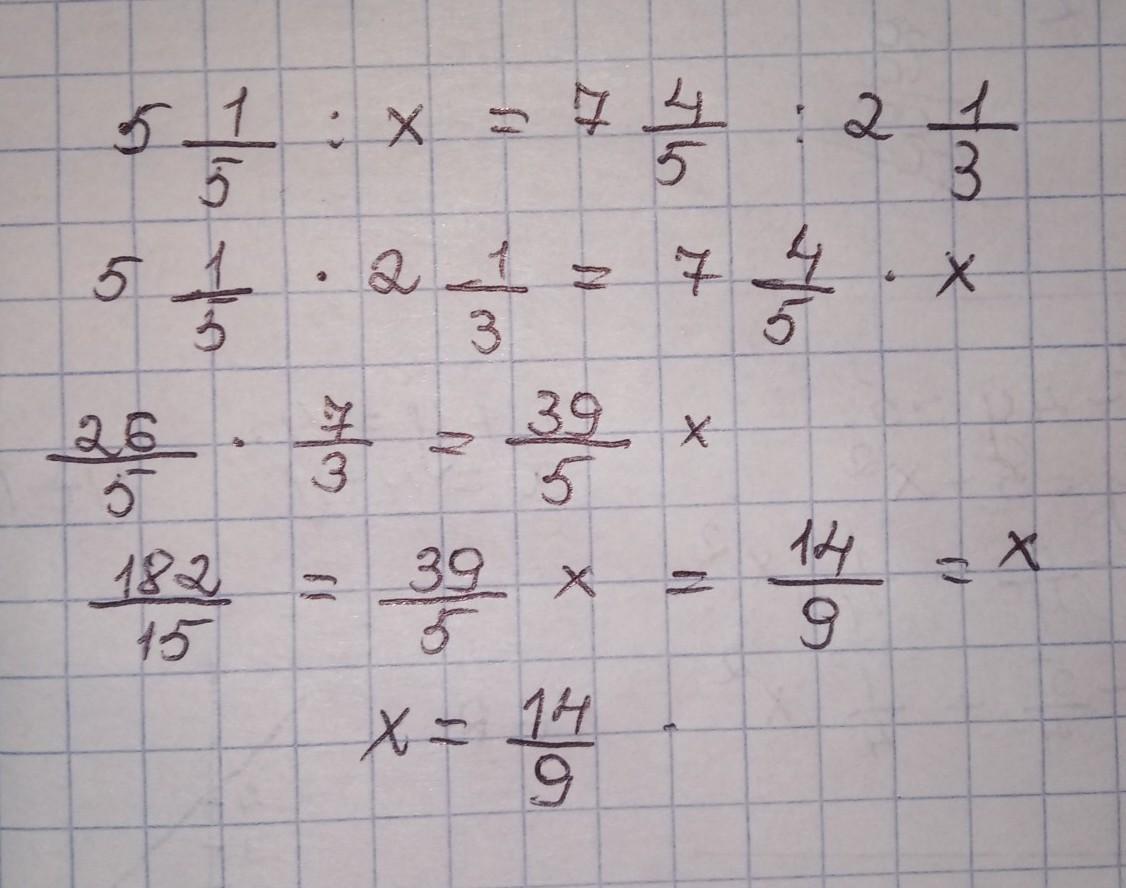 5 1/5 : x = 7 4/5 : 2 1/3
5 1/5 · 2 1/3 = 7 4/5 · x
26/5 · 7/3 = 39/5 x
182/15 = 39/5 x = 14/9 = x
x = 14/9